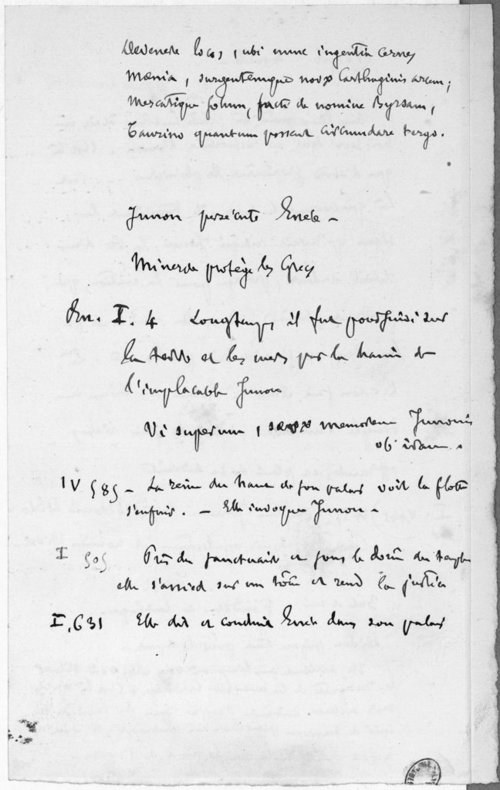 Devenere locos, ubi nunc ingentia cernes
Mœnia, surgentemque novæ Carthaginis arcem;
Mercatique solum, facti de nomine Byrsam,
Taurino quantum possent circumdare tergo.
Junon persécute Enée –
Minerve protège les Grecs
En. I. 4 Longtemps il fut poursuivi sur
la terre et les mers par la haine de
l'implacable Junon
Vi superum, sævæ memorem Junonis
ob iram.
IV 585 – La reine du haut de son palais voit la flotte
s'enfuir. – Elle invoque Junon –
I 505 Près du sanctuaire et sous le dôme du temple
elle s'assied sur un trône et rend la justice
I. 631 Elle dit et conduit Enée dans son palais